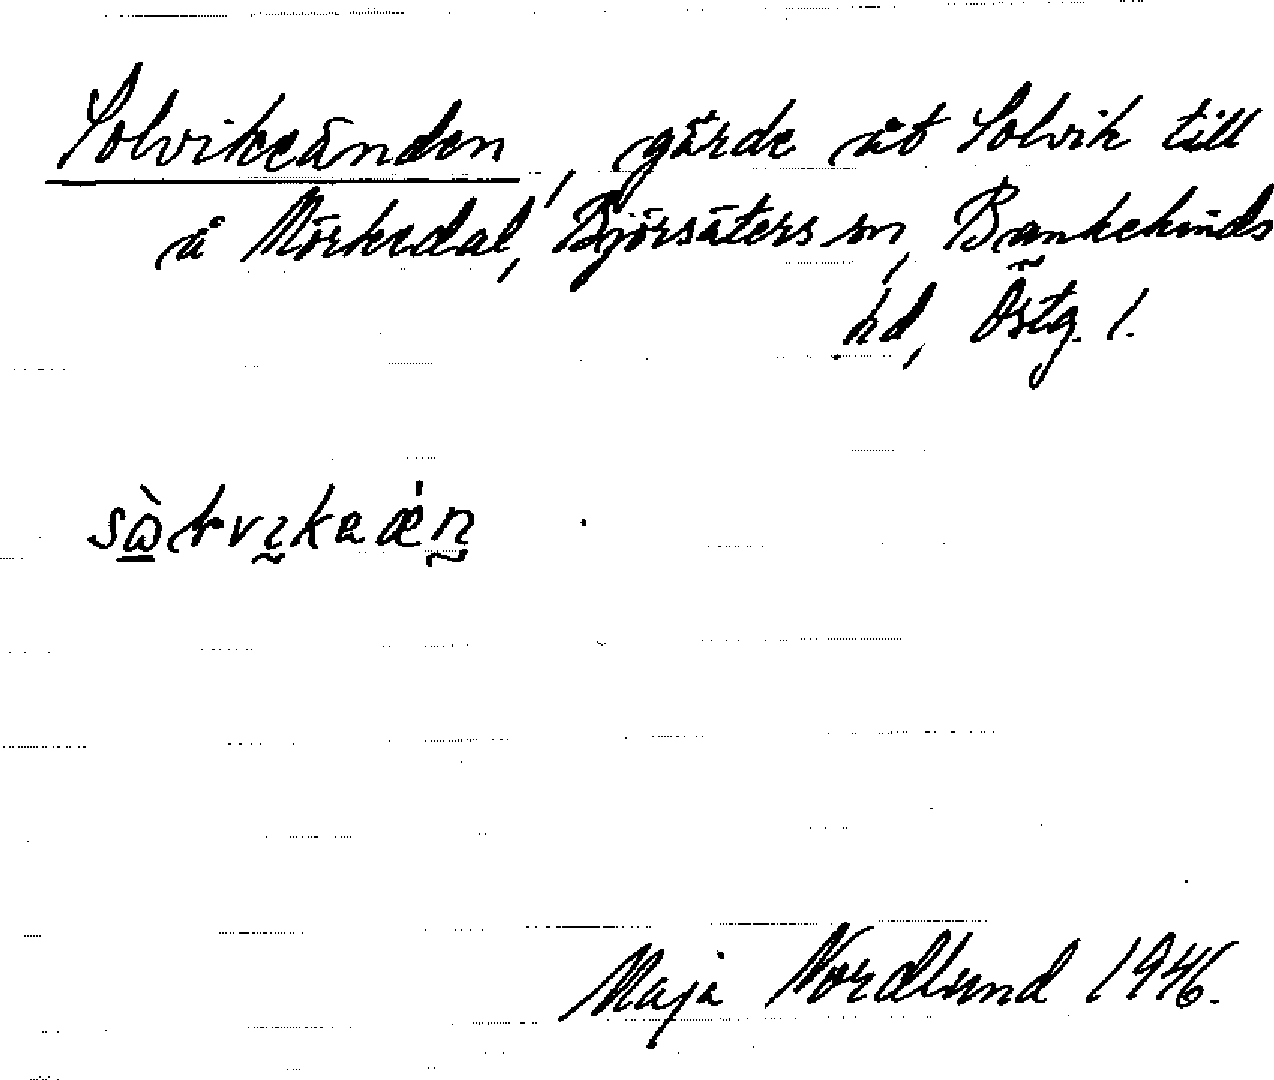 Solvikeänden, gärde åt Solvik till
å Mörkedal, Björsäters sn, Bankekinds
hd, Östg. l.
Maja Nordlund 1946.